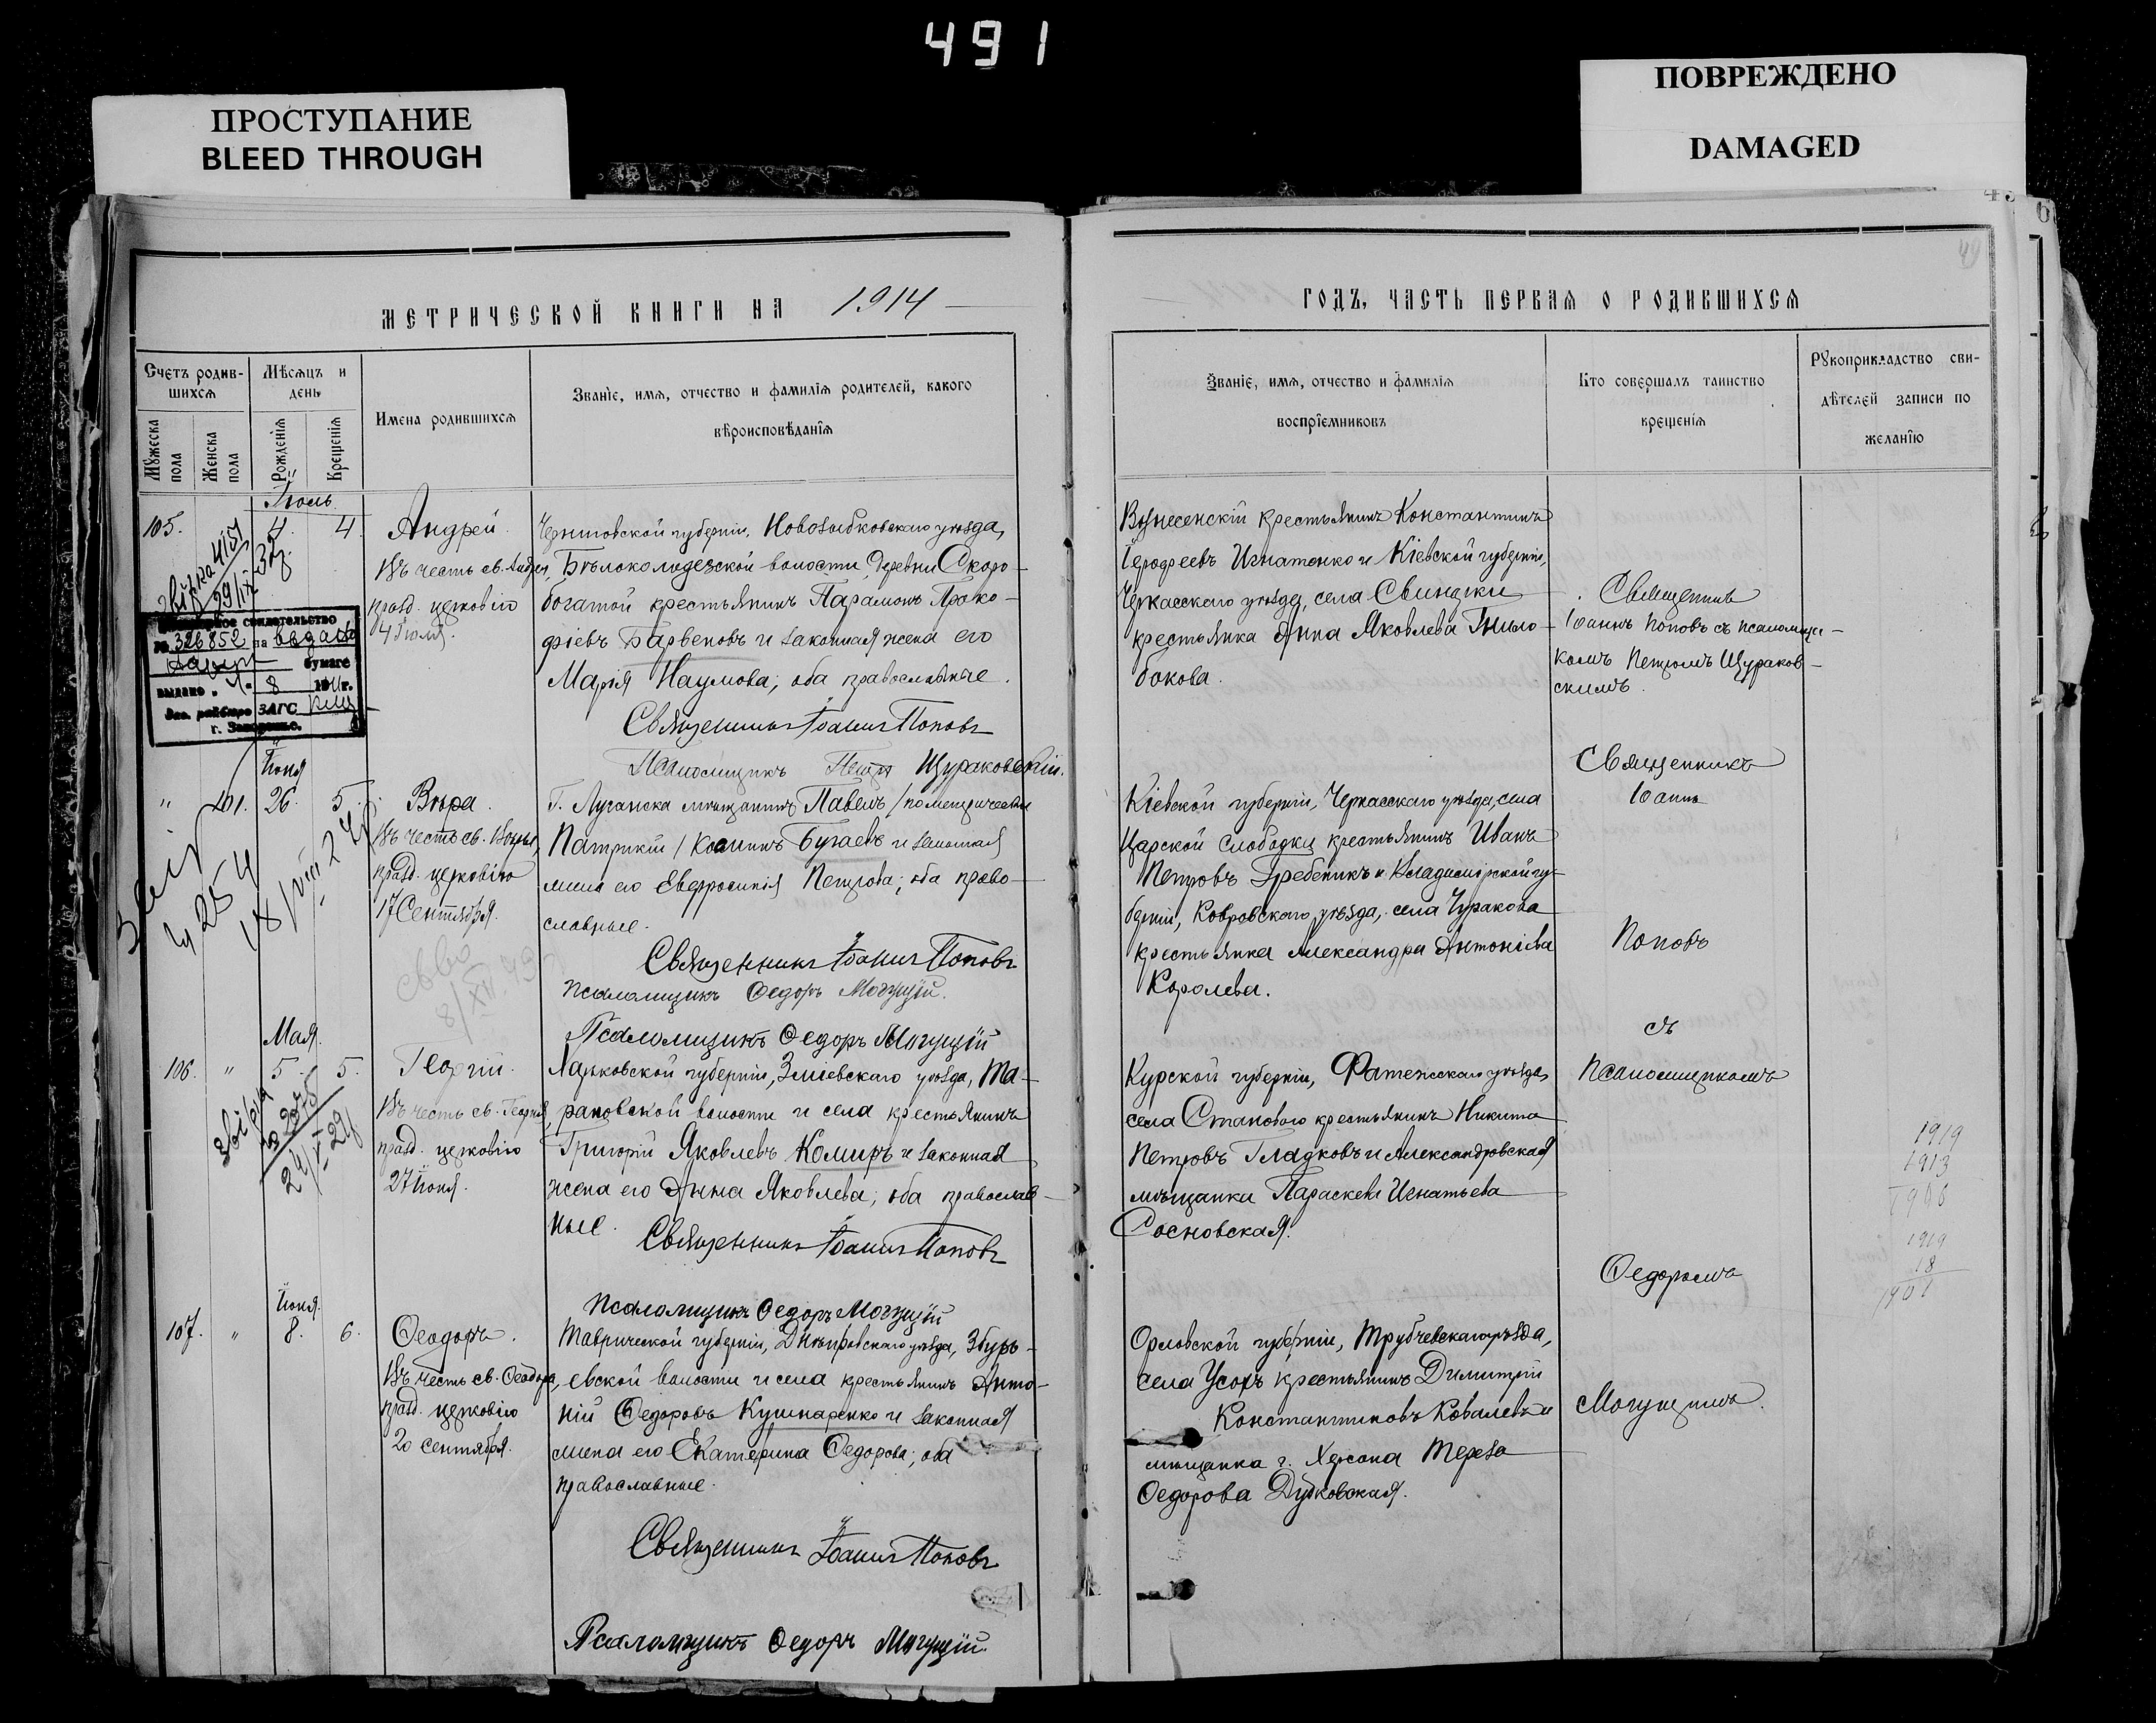 491
ПРОСТУПАНИЕ
BLEED THROUGH
ПОВРЕЖДЕНО
DAMAGED
МЕТРИЧЕСКОЙ КНИГИ НА 1914
Счетъ родив-
шихся
Мѣсяцъ и
день
Мужеска пола
Женска пола
Рожденія
Крещенія
Имена родившихся
Званіе, имя, отчество и фамилія родителей, какого
вѣроисповѣданія
Іюль
105. 4. 4. Андрей.
Въ честь св. Андрея,
празд. церковію
4 Іюля.
Черниговской губерніи, Новозыбковскаго уѣзда,
Бѣлоколодезской волости, деревни Скоро-
богатой крестьянинъ Парамонъ Проко-
фіевъ Барвеновъ и законная жена его
Марія Наумова; оба православные.
Священникъ Іоаннъ Поповъ
Псаломщикъ Петръ Щураковскій.
4151
29/IX 37
свидетельство
№ 326852 на
бумаге
выдано " 8
Зав. райбюро ЗАГС
г.
Іюня
" 101. 26. 5. Вѣра.
Въ честь св. Вѣры,
празд. церковію
17 Сентября.
Г. Луганска мѣщанинъ Павелъ /по метрической
Патрикій / Косминъ Бугаевъ и законная
жена его Евфросинія Петрова; оба право-
славные.
Священникъ Іоаннъ Поповъ
Псаломщикъ Ѳедоръ Могущій.
Псаломщикъ Ѳедоръ Могущій
254
18/VIII
8/XII
Мая.
106. " 5. 5. Георгій.
Въ честь св. Георгія,
празд. церковію
27 Іюня.
Харьковской губерніи, Зміевскаго уѣзда, Та-
рановской волости и села крестьянинъ
Григорій Яковлевъ Комиръ и законная
жена его Анна Яковлева; оба православ-
ные.
Священникъ Іоаннъ Поповъ
Псаломщикъ Ѳедоръ Могущій
Іюня.
107. " 8. 6. Ѳеодоръ.
Въ честь св. Ѳеодора,
празд. церковію
20 Сентября.
Таврической губерніи, Днѣпровскаго уѣзда, Збурь-
евской волости и села крестьянинъ Анто-
ній Ѳедоровъ Кушнаренко и законная
жена его Екатерина Ѳедорова; оба
православные.
Священникъ Іоаннъ Поповъ
Псаломщикъ Ѳедоръ Могущій.
ГОДЪ, ЧАСТЬ ПЕРВАЯ О РОДИВШИХСЯ
Званіе, имя, отчество и фамилія
воспріемниковъ
Кто совершалъ таинство
крещенія
Рукоприкладство сви-
дѣтелей записи по
желанію
Вознесенскій крестьянинъ Константинъ
Іерофеевъ Игнатенко и Кіевской губерніи,
Черкасскаго уѣзда, села Свинарки
крестьянка Анна Яковлева Гнило-
бокова.
Священникъ
Іоаннъ Поповъ съ псаломщи-
комъ Петромъ Щураков-
скимъ.
Кіевской губерніи, Черкасскаго уѣзда, села
Царской Слободки крестьянинъ Иванъ
Петровъ Гребеникъ и Владимірской гу-
берніи, Ковровскаго уѣзда, села Чуракова
крестьянка Александра Антоніева
Королева.
Священникъ
Іоаннъ
Поповъ
съ
Курской губерніи, Фатежскаго уѣзда,
села Становаго крестьянинъ Никита
Петровъ Гладковъ и Александровская
мѣщанка Параскева Игнатьева
Сосновская.
Псаломщикомъ
Ѳедоромъ
Орловской губерніи, Трубчевскаго уѣзда,
села Усохъ крестьянинъ Димитрій
Константиновъ Ковалевъ и
мѣщанка г. Херсона Тереза
Ѳедорова Дубковская.
Могущимъ.
1919
1913
1906
1919
18
1901